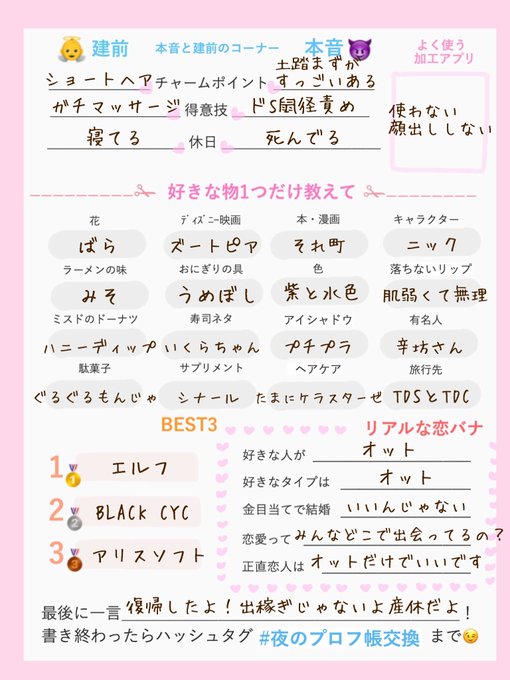 建前 本音と建前のコーナー 本音 よく使う
加工アプリ
ショートヘア チャームポイント 土踏まずが
すっごいある
ガチマッサージ 得意技 ドS鼠径責め
寝てる 休日 死んでる
使わない
顔出ししない
好きな物1つだけ教えて
花 ディズニー映画 本・漫画 キャラクター
ばら ズートピア それ町 ニック
ラーメンの味 おにぎりの具 色 落ちないリップ
みそ うめぼし 紫と水色 肌弱くて無理
ミスドのドーナツ 寿司ネタ アイシャドウ 有名人
ハニーディップ いくらちゃん プチプラ 辛坊さん
駄菓子 サプリメント ヘアケア 旅行先
ぐるぐるもんじゃ シナール たまにケラスターゼ TDSとTDC
BEST3
1 エルフ
2 BLACK CYC
3 アリスソフト
リアルな恋バナ
好きな人が オット
好きなタイプは オット
金目当てで結婚 いいんじゃない
恋愛って みんなどこで出会ってるの?
正直恋人は オットだけでいいです
最後に一言 復帰したよ!出稼ぎじゃないよ産休だよ!
書き終わったらハッシュタグ #夜のプロフ帳交換 まで